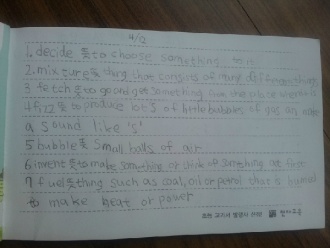 4/2
1. decide 뜻 to choose something to
2. mixture 뜻 thing that consists of many different things
3 fetch 뜻 to go and get something from the place where it is
4 fizz 뜻 to produce lots of little bubbles of gas an make
a sound like 's'
5 bubble 뜻 small balls of air
6 invent 뜻 to make something or think of something at first
7 fuel 뜻 thing such as coal, oil or petrol that is burned
to make heat or power